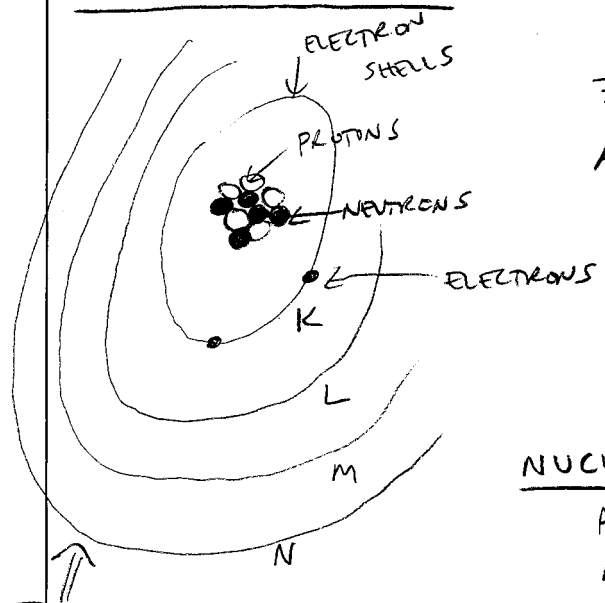 ELECTRON
SHELLS
PROTONS
NEUTRONS
ELECTRONS
K
L
M
N
NUC